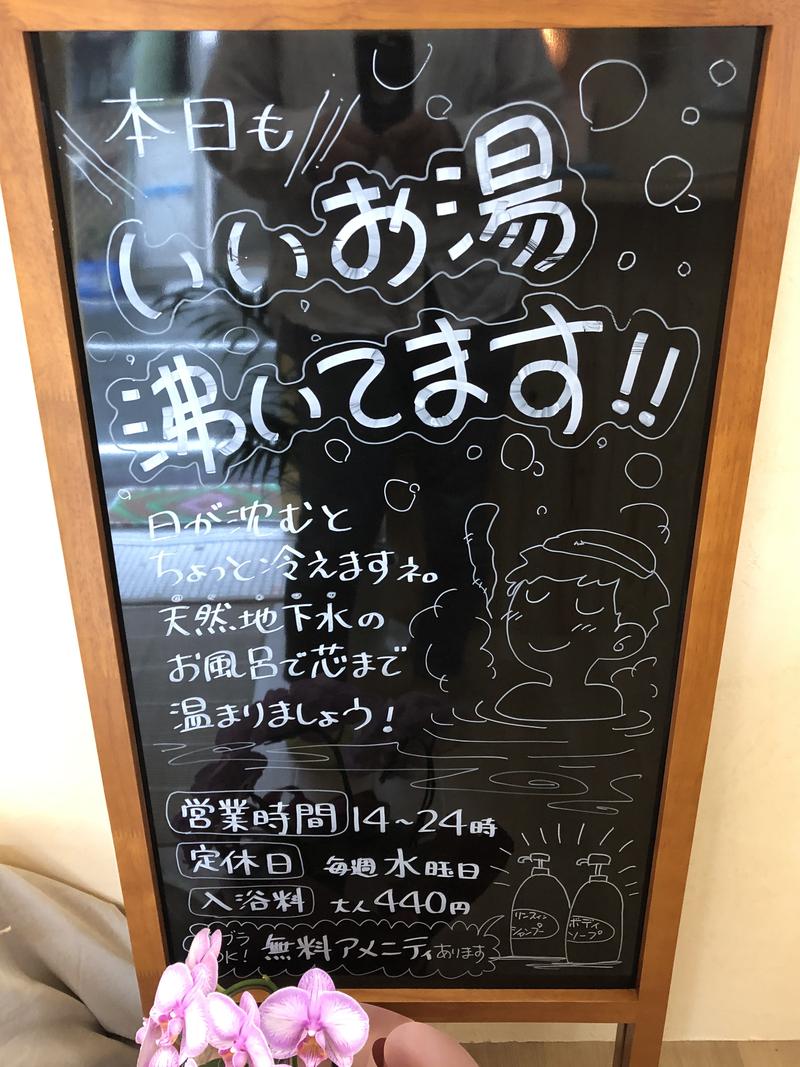 本日も
いいお湯
沸いてます!!
日が沈むと
ちょっと冷えますネ。
天然地下水の
お風呂で芯まで
温まりましょう!
営業時間 14~24時
定休日 毎週水曜日
入浴料 大人440円
ブラ
OK! 無料アメニティあります
リンスイン
シャンプー
ボディ
ソープ